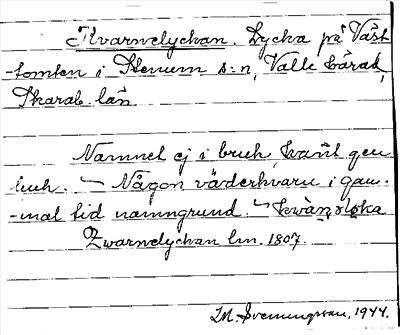 Kvarnelyckan. Lycka på Väst-
-tomten i Stenum s:n, Valle härad,
Skarab. län.
Namnet ej i bruk, känt gen
luh. – Någon väderkvarn i gam-
-mal tid namngrund. –
Qvarnelyckan lm. 1807.
I.M. Svenungsson, 1944.